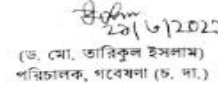 ২০/৬/2023
(ড. মো. তারিকুল ইসলাম)
পরিচালক, গবেষণা (চ. দা.)